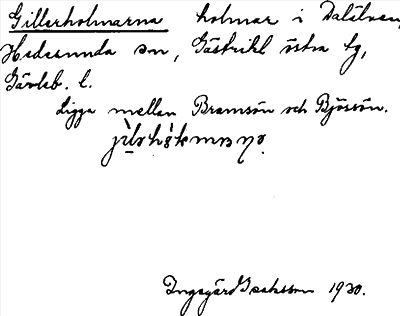 Gillerholmarna holmar i Dalälven,
Hedesunda sn, Gästrikl. östra tg,
Gävleb. l.
Ligga mellan Bramsön och Björsön.
Ingegärd Isaksson 1930.